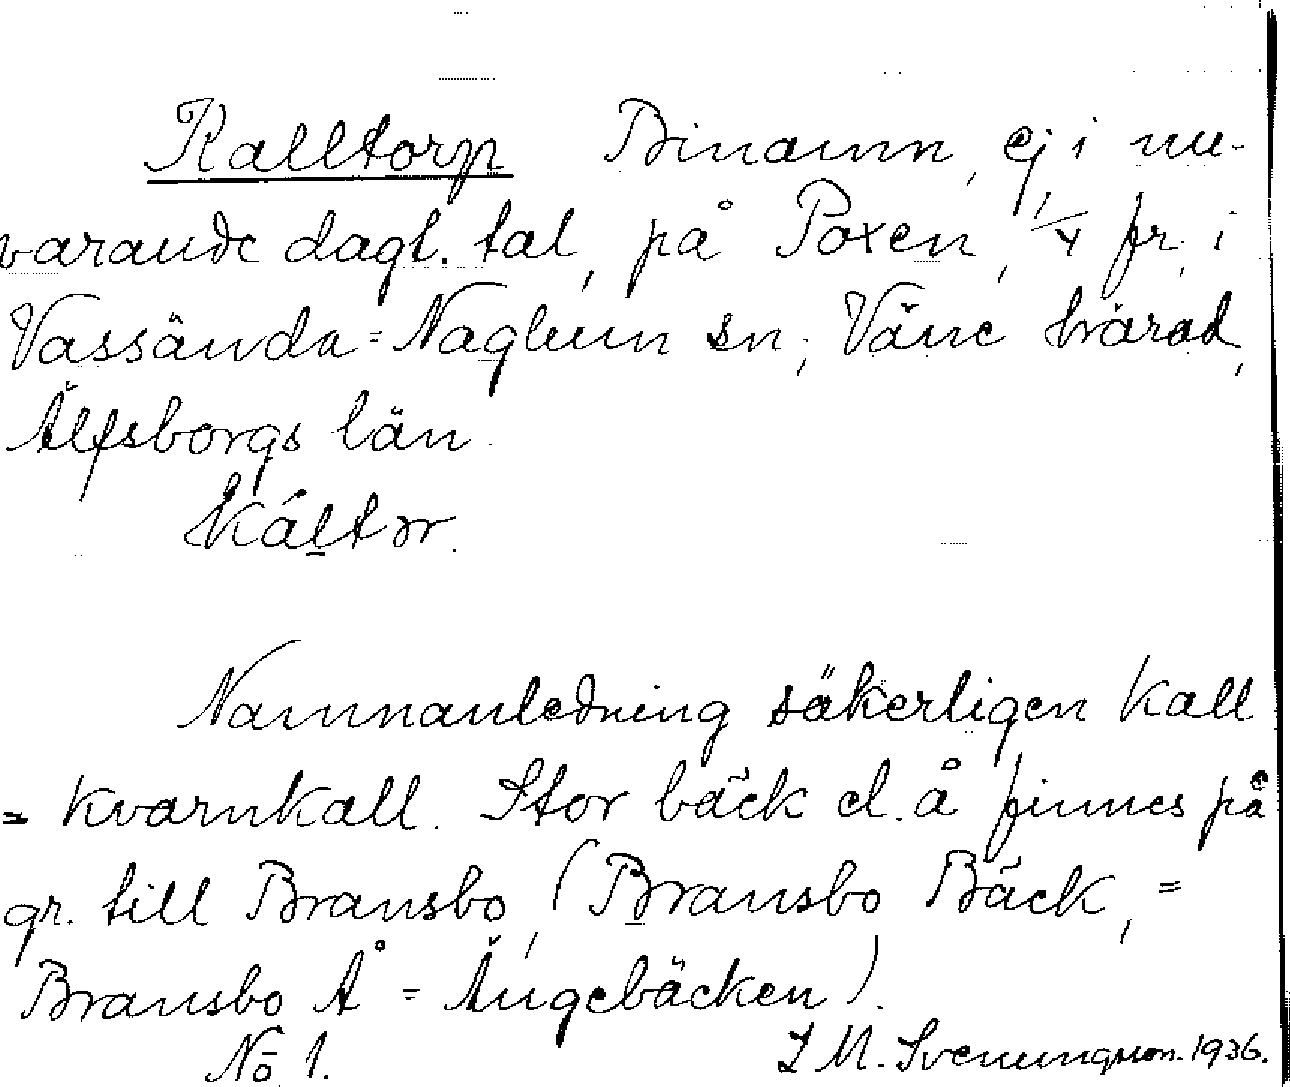 Kalltorp Binamn, ej i nu-
varande dagl. tal, på Poxen, 1/4 fr. i
Vassända-Naglum sn, Väne härad,
Älfsborgs län.
kált

Namnanledning säkerligen kall
= kvarnkall. Stor bäck el. å finnes på
gr. till Bransbo, (Bransbo Bäck, =
Bransbo Å = Ängebäcken).
No 1. Svenungsson. 1936.